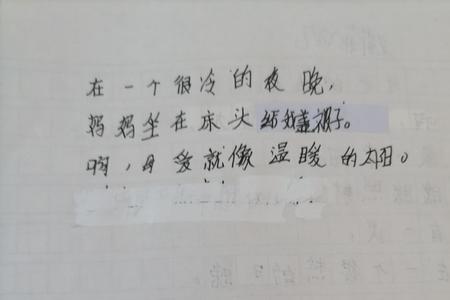 在一个很冷的夜晚，
妈妈坐在床头给我盖被子。
啊，母爱就像温暖的太阳。